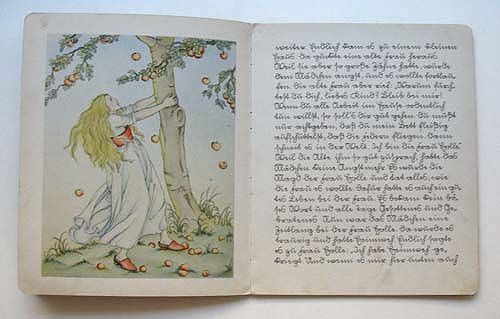 weiter. Endlich kam es zu einem kleinen
Haus, da guckte eine alte Frau heraus.
Weil sie aber so große Zähne hatte, wurde
dem Mädchen angst, und es wollte fortlau-
fen. Die alte Frau aber rief: „Warum fürch-
test du dich, liebes Kind? Bleib bei mir!
Wenn du alle Arbeit im Hause ordentlich
tun willst, so soll's dir gut gehen. Du mußt
nur achtgeben, daß du mein Bett fleißig
aufschüttelst, daß die Federn fliegen. Dann
schneit es in der Welt. Ich bin die Frau Holle.“
Weil die Alte ihm so gut zusprach, hatte das
Mädchen keine Angst mehr. Es wurde die
Magd der Frau Holle und tat alles, wie
die Frau es wollte. Dafür hatte es auch ein gu-
tes Leben bei der Frau. Es bekam kein bö-
ses Wort und alle Tage Gesottenes und Ge-
bratenes. Nun war das Mädchen eine
Zeitlang bei der Frau Holle. Da wurde es
traurig und hatte Heimweh. Endlich sagte
es zu Frau Holle: „Ich habe Heimweh ge-
kriegt. Und wenn es mir hier unten auch